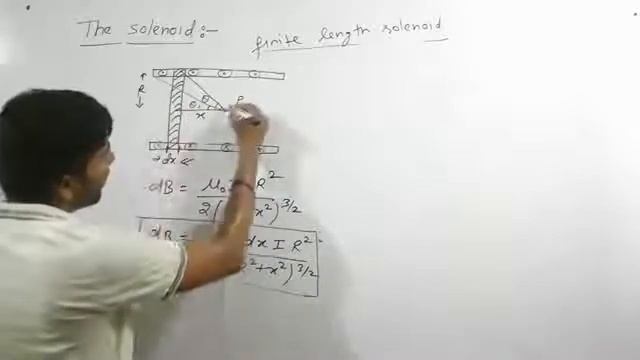 The solenoid :-
finite length solenoid
R
θ
θ₁
P
x
dx
dB = μ₀ R²
2( x²)^3/2
dB = dx I R²
²+x²)^3/2